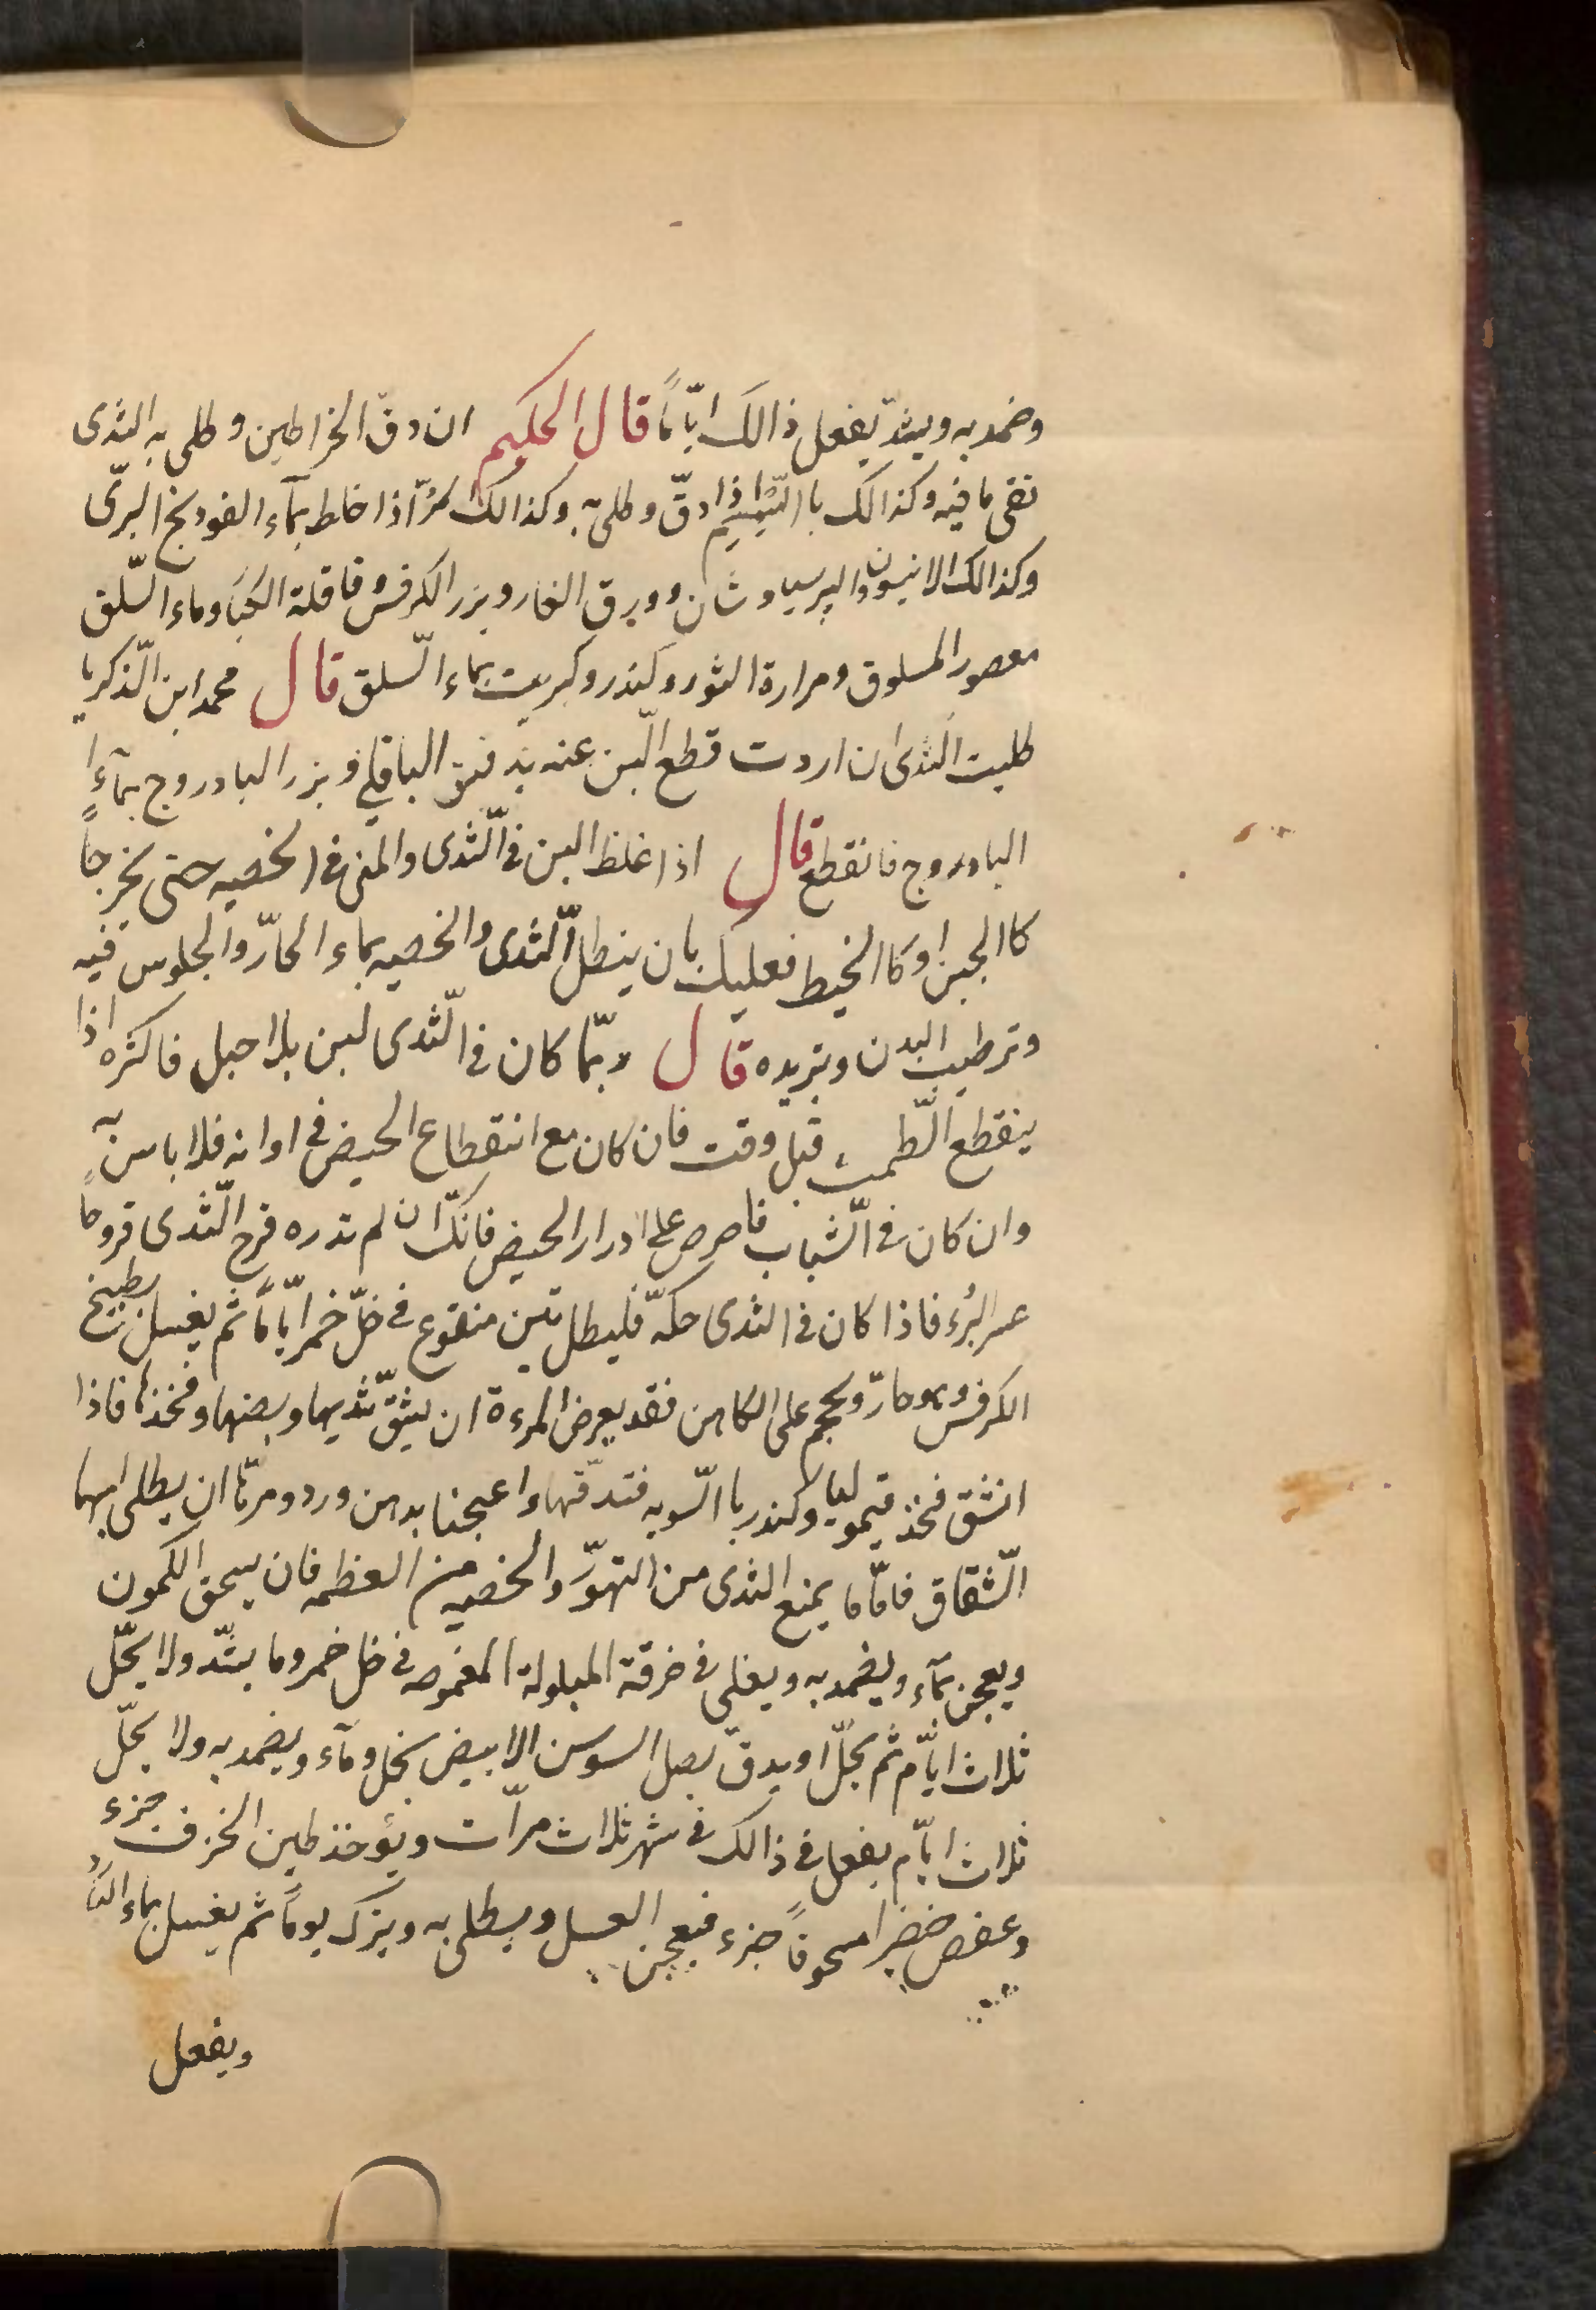 وضمد به ويشدّ يفعل ذالك ايّاماً قال الحكيم ان دقّ الخراطين وطلى به الثدى
نقى ما فيه وكذالك با اذا دقّ وطلى به وكذالك مرّاً اذا خلط بمآء الفودنج البرّى
وكذالك الانيسون والبرسياوشان وورق الغار وبزر الكرفس وقاقلة الكبار وماء السّلق
معصور المسلوق ومرارة الثور وكندر وكبريت بماء السّلق قال محمد ابن الذّكريا
طليت الثدى ان اردت قطع الّبن عنه بدقيق الباقلي وبزر البادروج بمآء
البادروج فانقطع قال اذا غلظ البن فى الّثدى والمنى فى الخصيه حتى يخرجاً
كا الجبن او كا الخيط فعليك بان ينطل الّثدى والخصيه بماء الحارّ والجلوس فيه
وترطيب البدن وتبريده قال ربّما كان فى الّثدى لبن بلا حبل فاكثره اذا
ينقطع الّطمث قبل وقت فان كان مع انتقطاع الحيض فى اوانه فلا باس به
وان كان فى الّشباب فاحرص على ادرار الحيض فانكّ ان لم تدره قرح الّثدى قروحاً
عسر البُرء فاذا كان فى الثدى حكّة فليطل بتين منقوع فى خلّ خمر ايّاماً ثم يغسل بطبيخ
الكرفس وهو حارّ ويحجم على الكاهن فقد يعرض المرءة ان يثقّ ثديها وبصنها وفخذها فاذا
انشق فخذ قيموليا وكندر با السّويه فتدقّها واعجنا بدهن ورد ومرّتا ان يطلى بهما
الّشقاق فامّا ما يمنع الثدى من التهوّر والخصيه من العظمه فان يسحق الكمون
ويعجن بمآء ويضمد به ويغلى فى خرقة المبلولة المغموصه فى خل خمر وما يشّد ولا يحّل
ثلاث ايّام ثم يحلّ او يدقّ بصل السوسن الابيض بخل ومآء ويضمد به ولا يحلّ
ثلاث ايّام يفعل فى ذالك فى شهر ثلاث مرّات ويؤخذ طين الخزف جزء
وعفص خضرا مسحوقاً جزء فيعجن العسل ويطلى به ويترك يوماً ثم يغسل بماء
ويفعل